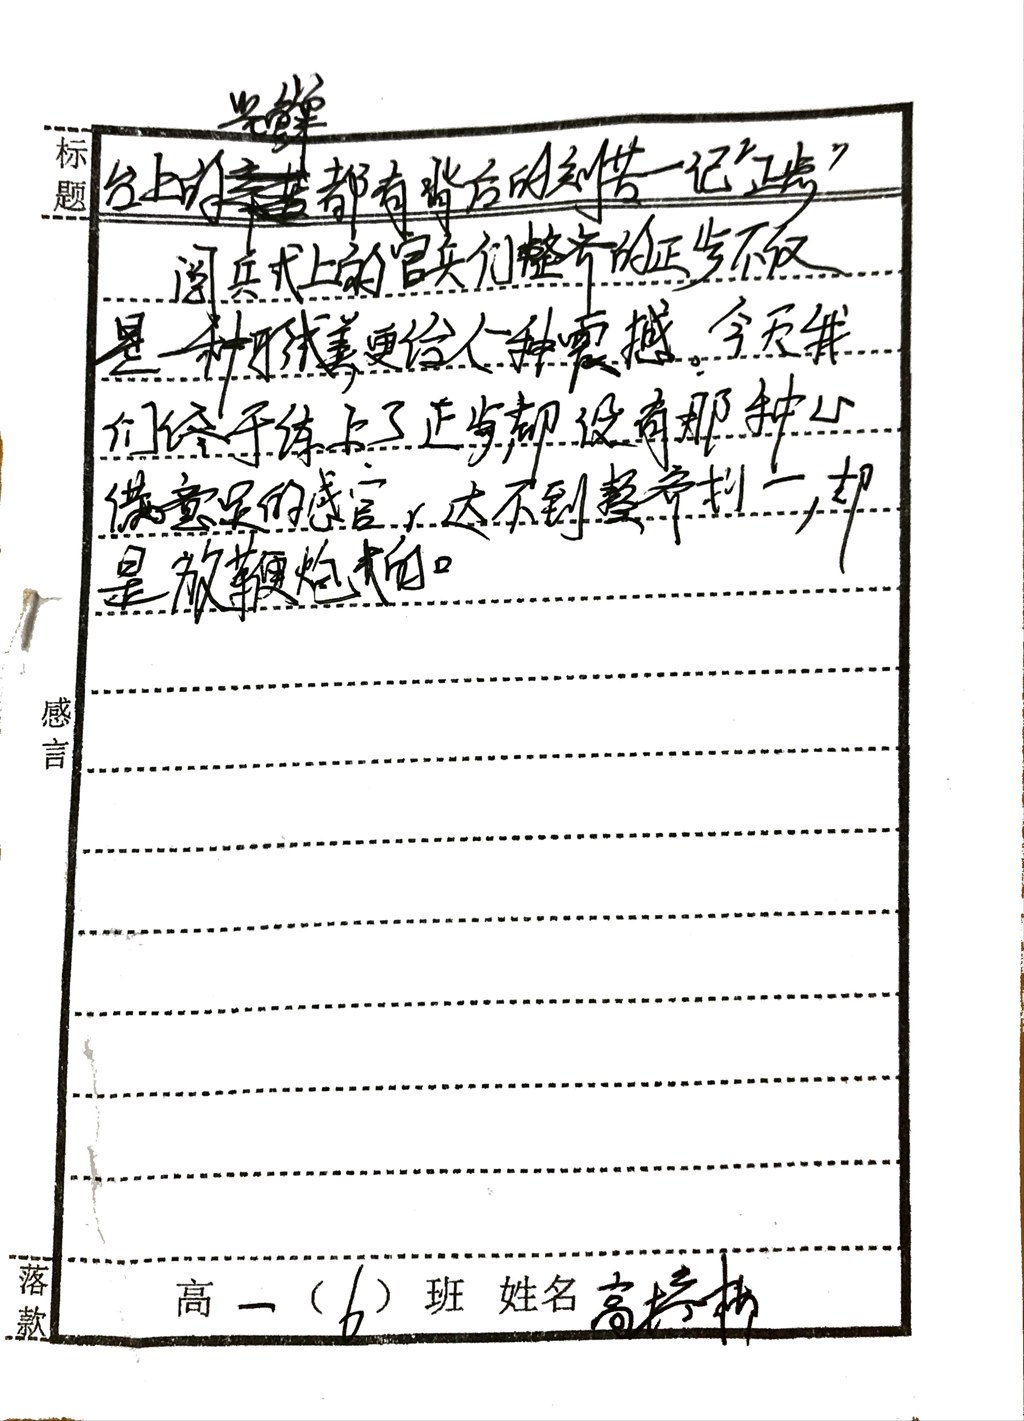 光鲜
标题 台上的都有背后的刻苦一记"正步"
阅兵式上的官兵们整齐的正步不仅
是一种形式美更给人一种震撼。今天我
们终于练上了正步,却没有那种心
满意足的感官,达不到整齐划一,却
是放鞭炮式的。
感言
落款 高一(6)班 姓名 高